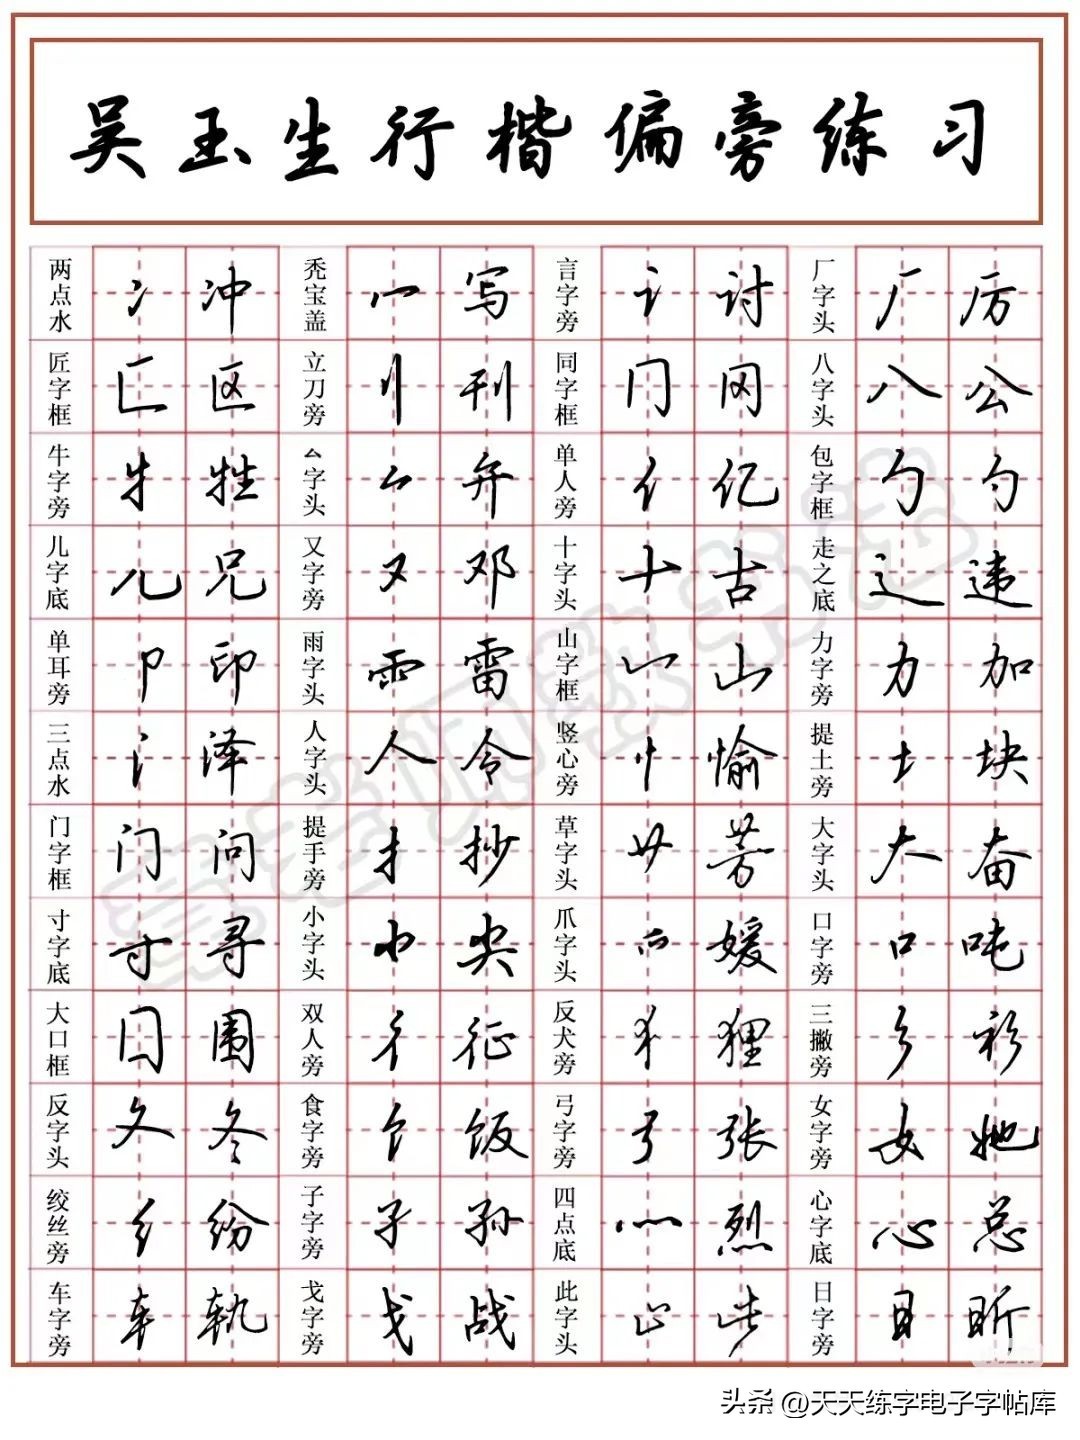 吴玉生行楷偏旁练习
两点水 冫 冲 秃宝盖 冖 写 言字旁 讠 讨 厂字头 厂 厉
匠字框 匚 区 立刀旁 刂 刊 同字框 冂 冈 八字头 八 公
牛字旁 牜 牲 厶字头 厶 弁 单人旁 亻 亿 包字框 勹 勺
儿字底 儿 兄 又字旁 又 邓 十字头 十 古 走之底 辶 违
单耳旁 卩 印 雨字头 雨 雷 山字框 山 力字旁 力 加
三点水 氵 泽 人字头 人 令 竖心旁 忄 愉 提土旁 土 块
门字框 门 问 提手旁 扌 抄 草字头 艹 芳 大字头 大 奋
寸字底 寸 寻 小字头 小 尖 爪字头 爫 媛 口字旁 口 吨
大口框 囗 围 双人旁 彳 征 反犬旁 犭 狸 三撇旁 彡 衫
反字头 夂 冬 食字旁 饣 饭 弓字旁 弓 张 女字旁 女 她
绞丝旁 纟 纷 子字旁 子 孙 四点底 灬 烈 心字底 心 总
车字旁 车 轨 戈字旁 戈 战 此字头 止 此 日字旁 日 昕
头条 @天天练字电子字帖库